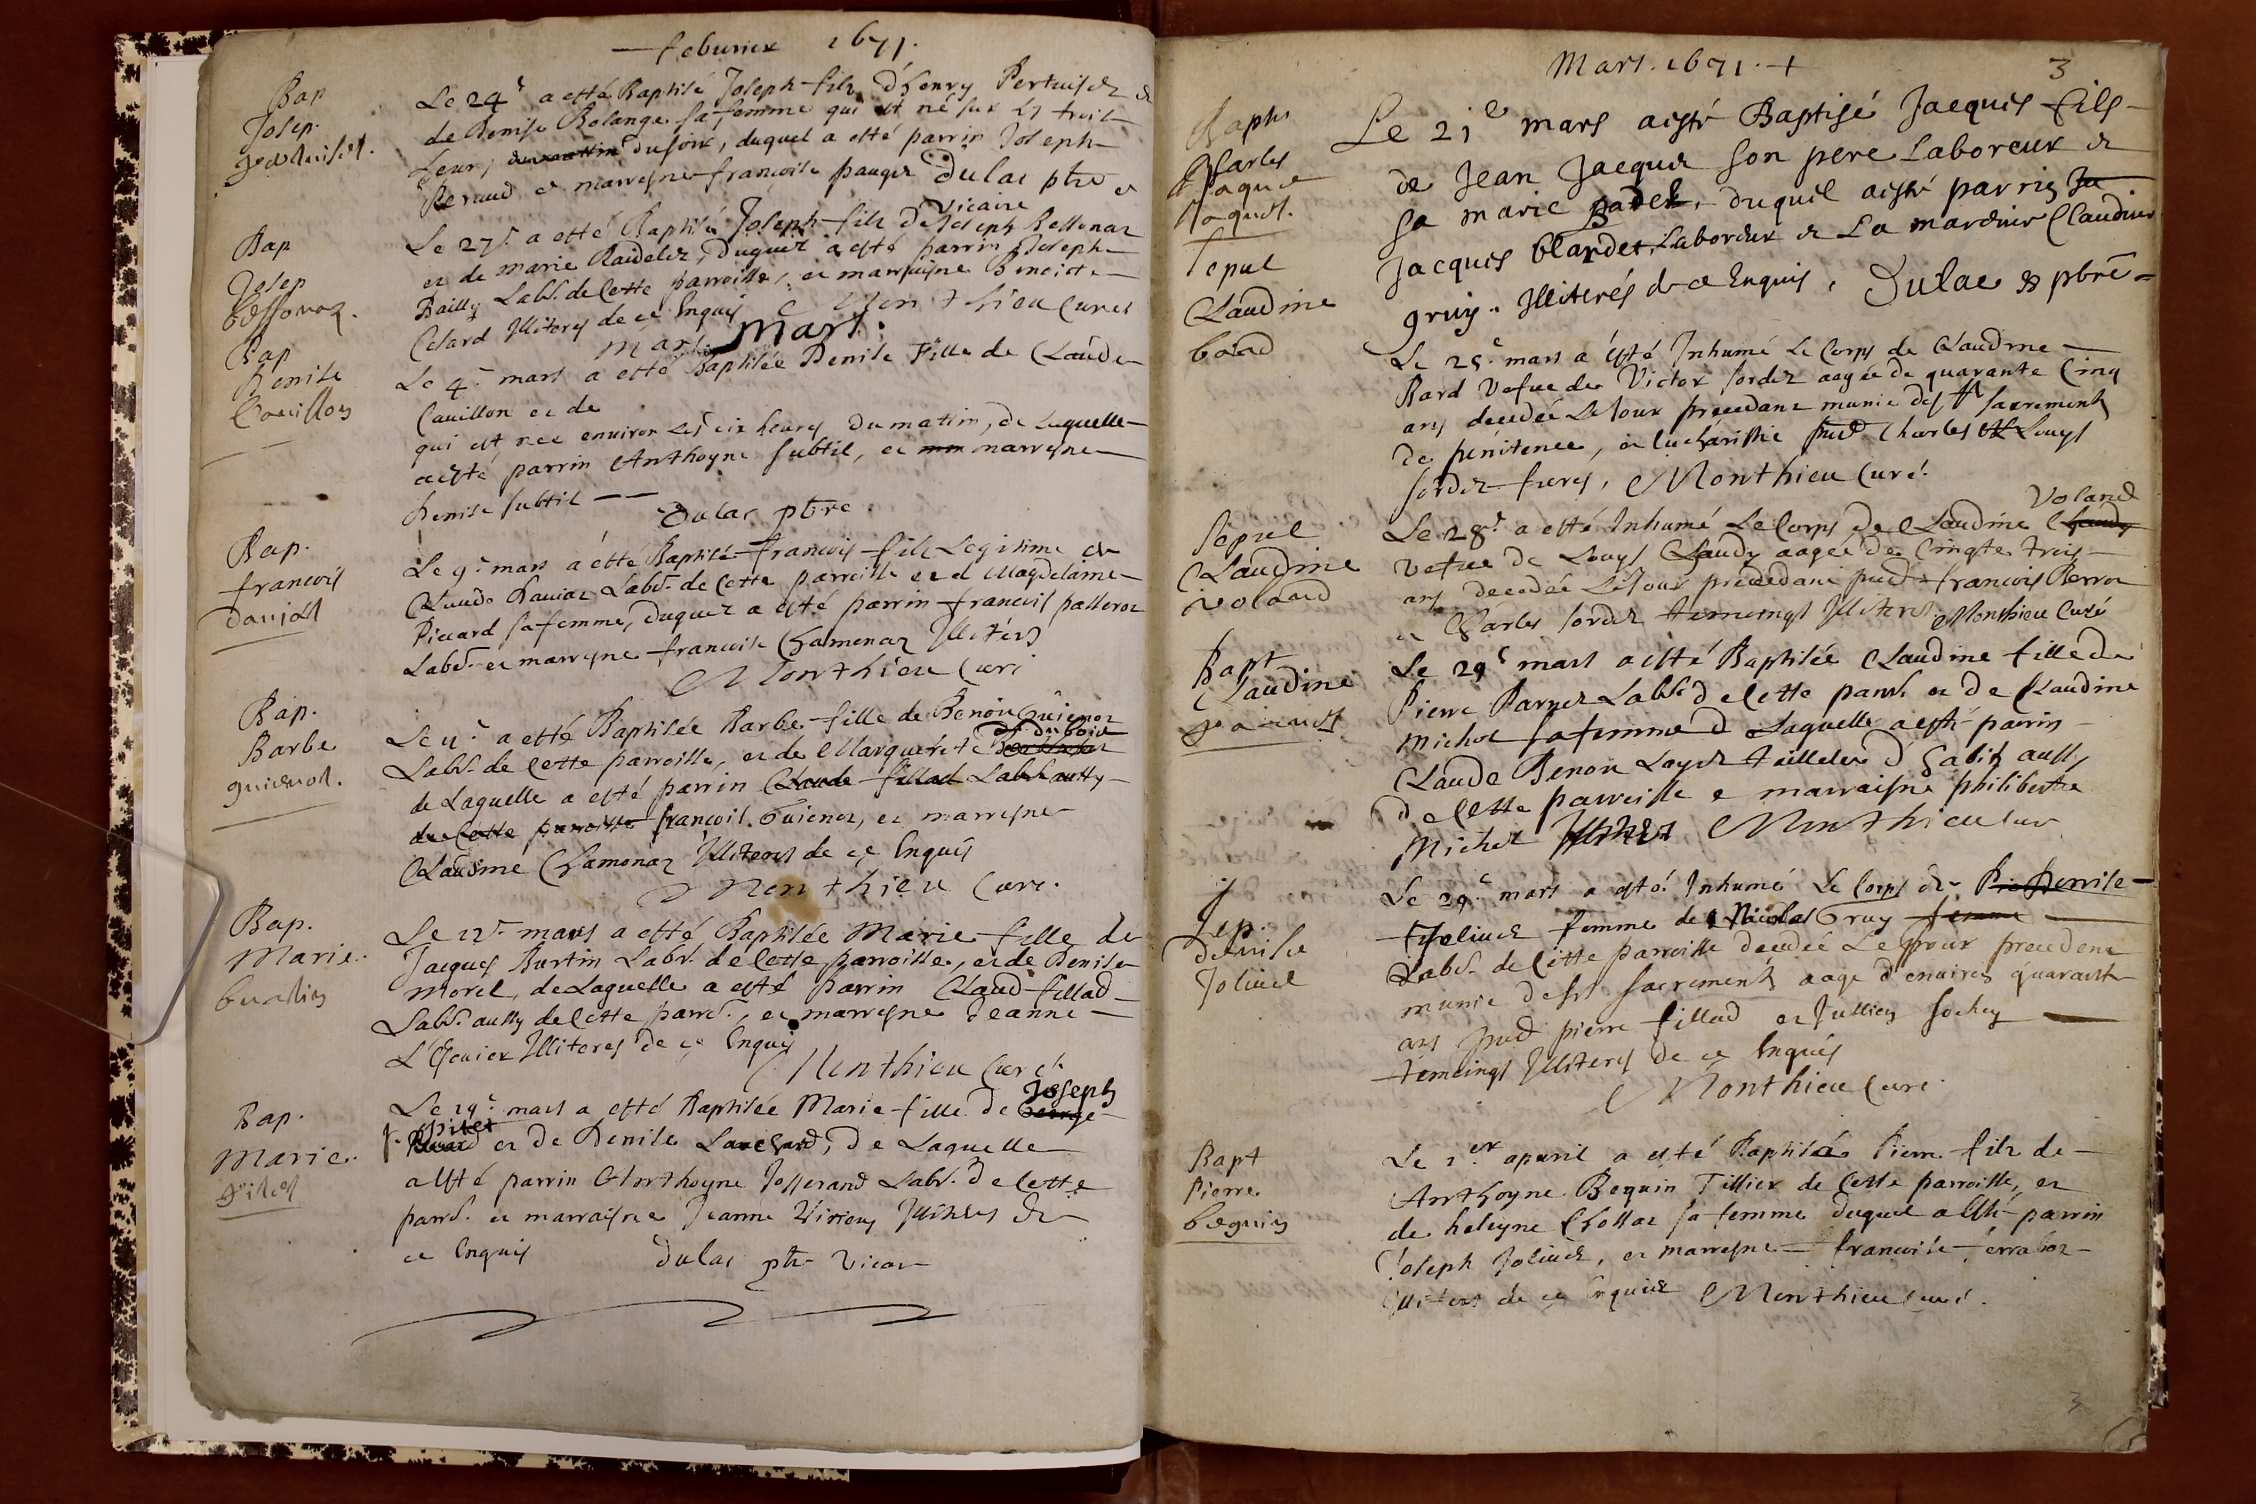 feburier 1671.
Bap
Josep.
Le 24e a esté Baptisé Joseph fils d'henry Pertuiset &
de Denise Bolange sa femme qui est né sur les trois
heur, du soir, duquel a esté parrin Joseph
Renaud et marreyne francoise pauget Dulac ptre et
vicaire
Bap
Josep
Le 27e a esté Baptisé Joseph fils de Joseph Bessonat
et de marie Raidelet, duquel a esté parrin Joseph
Bailly Labr. de Cette parroisse, et marreyne Benoicte
Celard Illiterés de ce Enquis Monthieu Curé
Mars.
Bap
Denise
Cavillon
Le 4e mars a esté Baptisée Denise Fille de Claude
Cavillon et de
qui est nee environ les six heures du matin, de Laquelle
a esté parrin Anthoyne Subtil, et marreyne
Denise Subtil
Dulac ptre
Bap.
francois
Le 9e mars a esté Baptisé francois fils Legitime de
Claude Labr. de Cette parroisse et de Magdelaine
Picard sa femme, duquel a esté parrin francois passerat
Labr. et marreyne francoise Chamonar Illiterés
Monthieu Curé
Bap.
Barbe
guienot.
Le 11e a esté Baptisée Barbe fille de Benoit Guienot
Labr. de Cette parroisse, et de Marguerite dubois
de Laquelle a esté parrin Claude fillad Labr. aussy
de Cette parroisse francois Guienot, et marreyne
Claudine Chamonar Illiterés de ce Enquis
Monthieu Curé.
Bap.
Marie
burtin
Le 12e mars a esté Baptisée Marie fille de
Jacques Burtin Labr. de Cette parroisse, et de Denise
morel, de Laquelle a esté parrin Claud fillad
Labr. aussy de Cette parr., et marreyne Jeanne
L'Escuier Illiteres de ce Enquis
Monthieu Curé
Bap.
Marie
pitet
Le 19e mars a esté Baptisée Marie fille de George Joseph
pitet et de Denise Lanchard, de Laquelle
a esté parrin Anthoyne Josserand Labr. de Cette
parr. et marraisne Jeanne Illiteres de
ce Enquis Dulac ptr vicar
Mars. 1671. + 3
Bapts
Charles
Jaque
Jaquet.
Le 21e mars aesté Baptisé Jacques fils
de Jean Jacquet son pere Laboreur et
sa marie padet, duquel aesté parrin
Jacques blardet, Laboreur et La mardine Claudine
gruy. Illiterés de ce Enquis, Dulac pbre
Sepul
Claudine
board
Le 25e mars a esté Inhumé Le Corps de Claudine
Bard Vefue de Victor sordet aagée de quarante Cinq
ans decedée Le Jour precedant munie des sts sacrements
de penitence, et Eucharistie pnts Charles et Louys
sordet freres, Monthieu Curé.
Sepul
Claudine
voland
Le 28e a esté Inhumé Le Corps de Claudine Claudy Voland
vefue de Louys Claudy aagée de Cinqte trois
ans decedée Le Jour precedant pnts francois Perrot
et Charles sordet temoingt Illiteres Monthieu Curé
Bapt
Claudine
Le 29e mars a esté Baptisée Claudine fille de
Pierre Parnet Labr. de Cette parr. et de Claudine
michot sa femme de Laquelle a esté parrin
Claude Benon tailleur d'habits aussy
de Cette parroisse et marraisne philiberte
Michot Monthieu cur
Sep.
denise
Joliuet
Le 29e mars a esté Inhumé Le Corps de Denise
Joliuet femme de Nicolas Gruy femme
Labr. de Cette parroisse decedée Le Jour precedent
munie des sts sacrements aage d'enuiron quarante
ans pnts pierre fillad et Jullien
temoingt Illiteres de ce Enquis
Monthieu Curé
Bapt
Pierre
beguin
Le 1er apuril a esté Baptisé Pierre fils de
Anthoyne Beguin Tissier de Cette parroisse, et
de heleyne Chollat sa femme duquel a esté parrin
Joseph Joliuet, et marreyne francoise
Illiteres de ce Enquis Monthieu curé.
3